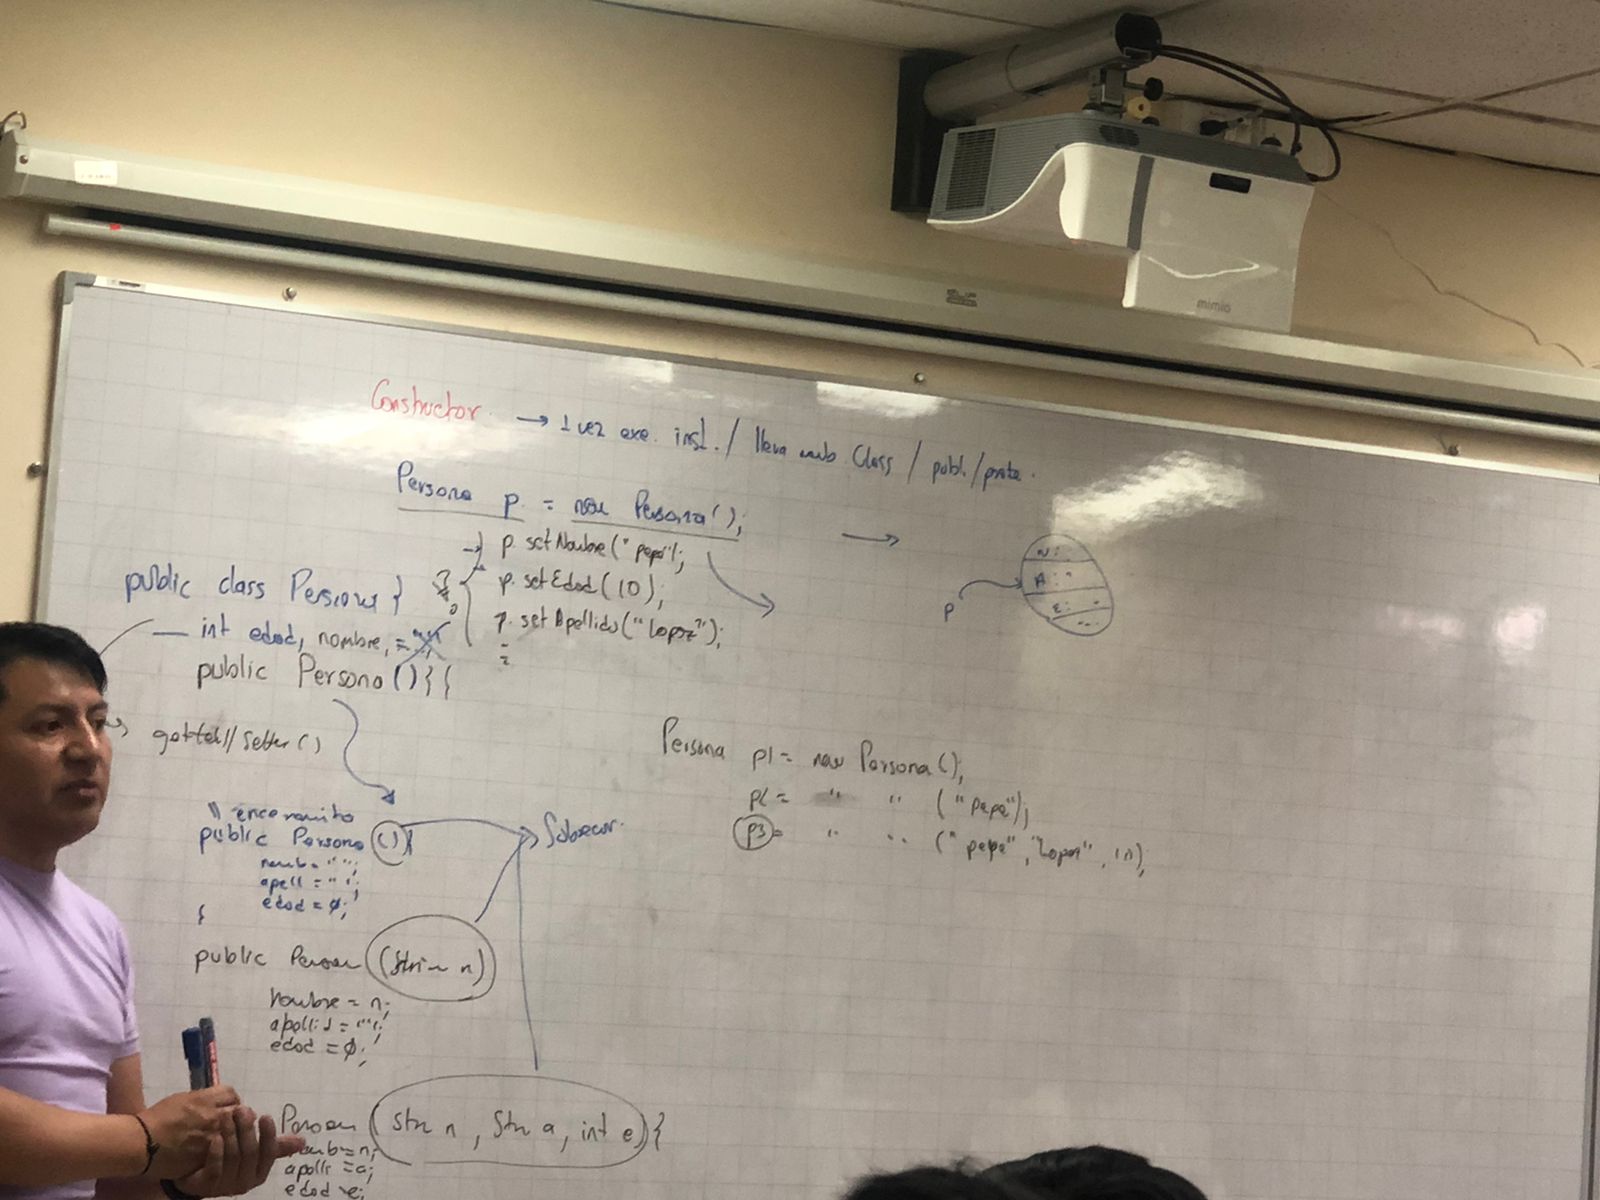 mimio
Constructor → 1 vez exe. inst. / lleva nomb Class / publ./prote.
Persona p = new Persona();
p.setNombre("pepe");
p.setEdad(10);
p.setApellido("Lopez");
public class Persona }
int edad, nombre,
public Persona(){{
getter//setter()
// enceramiento
public Persona (){
nomb=" ";
apell=" ";
edad=0;
}
public Person (Strin n)
Nombre = n;
apellid = "";
edad = 0;
Person (Str n, Str a, int e){
nomb=n;
apelli=a;
edad e;
Sobrecar.
N:
A: "
E:
p
Persona p1 = new Persona();
p2 = " " ("pepe");
p3 = " " ("pepe", "Lopez", 10);